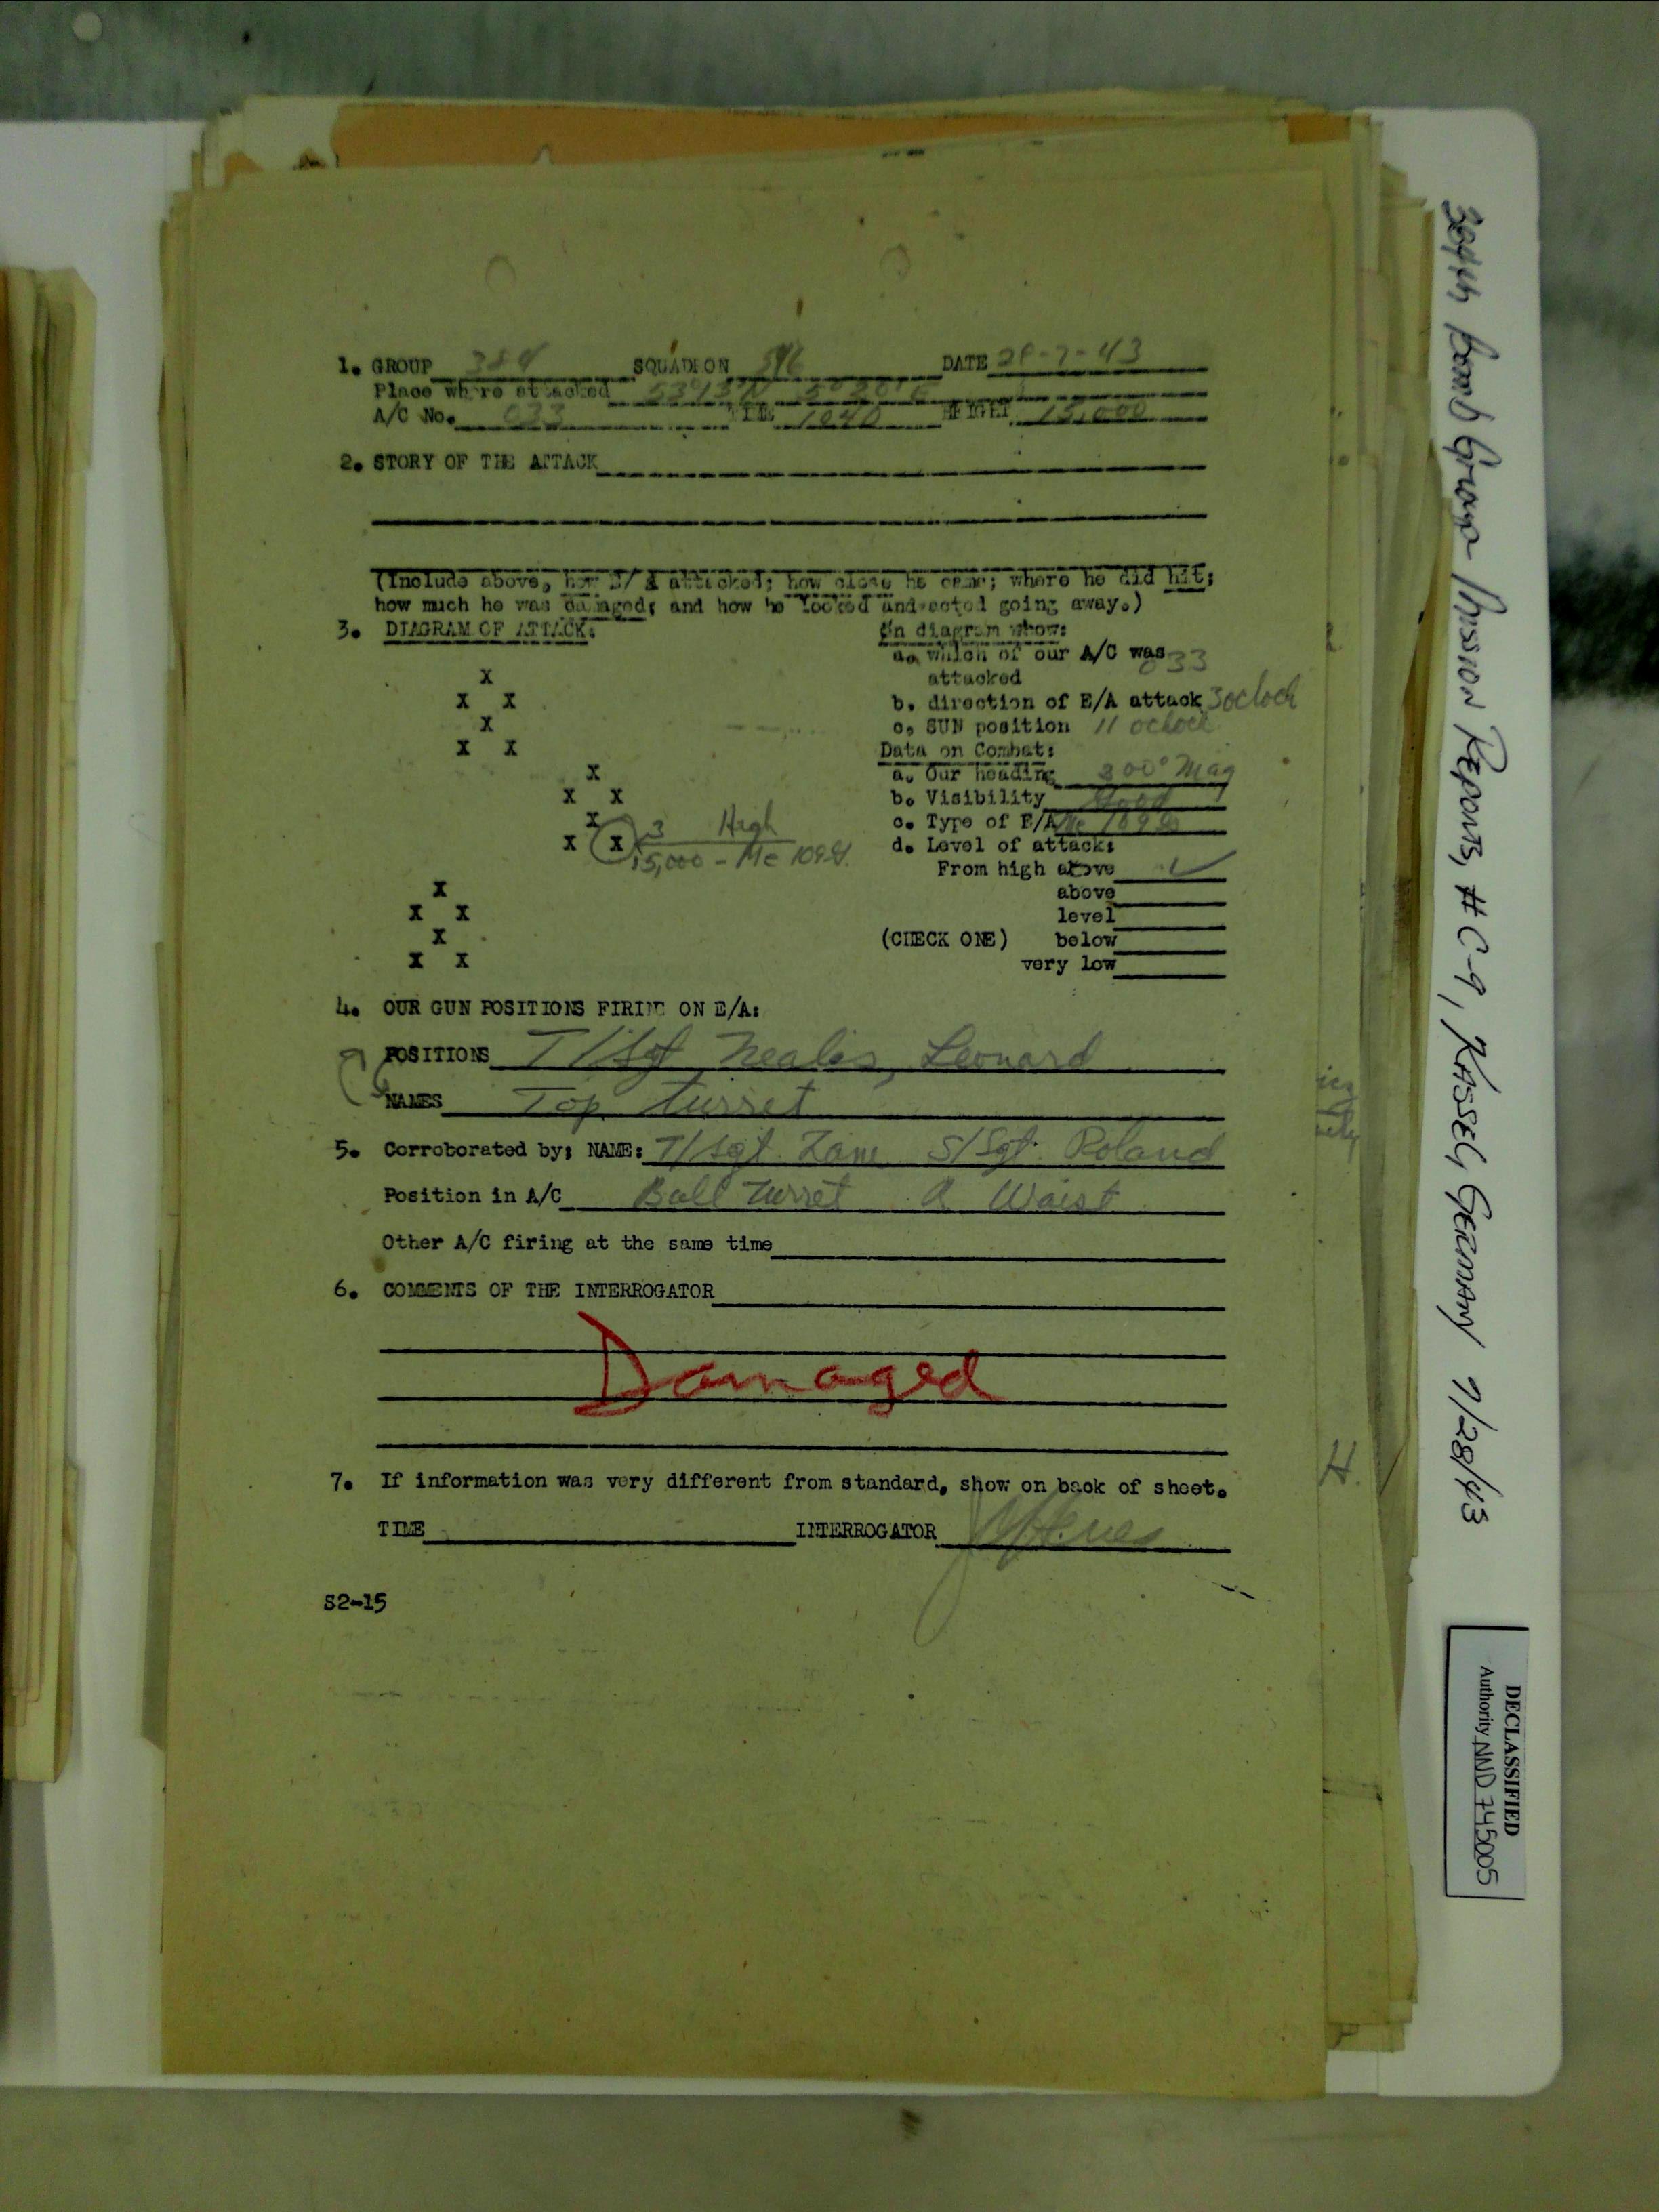 1. GROUP 384 SQUADRON 546 DATE 28-7-43
Place where attacked 53°13'N 5°20'E
A/C No. 033 TIME 1040 HEIGHT 15,000
2. STORY OF THE ATTACK
(Include above, how E/A attacked; how close he came; where he did hit;
how much he was damaged; and how he looked and acted going away.)
3. DIAGRAM OF ATTACK: On diagram show:
a. which of our A/C was 033
X attacked
X X b. direction of E/A attack 3 oclock
X c. SUN position 11 oclock
X X Data on Combat:
X a. Our heading 300° Mag
X X b. Visibility Good
X c. Type of E/A Me 109 Gs
X X 3 High d. Level of attack:
15,000 - Me 109 G.
From high above ✓
X above
X X level
X (CHECK ONE) below
X X very low
4. OUR GUN POSITIONS FIRING ON E/A:
POSITIONS T/Sgt Nealis, Leonard
NAMES Top turret
5. Corroborated by: NAME: T/Sgt. Zane S/Sgt. Roland
Position in A/C Ball Turret R Waist
Other A/C firing at the same time
6. COMMENTS OF THE INTERROGATOR
Damaged
7. If information was very different from standard, show on back of sheet.
TIME INTERROGATOR
S2-15
384th Bomb Group Mission Reports, # C-9, Kassel, Germany 7/28/43
DECLASSIFIED
Authority NND 745005
H.